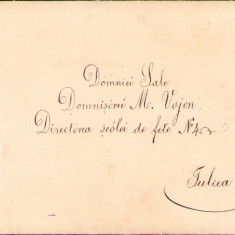 Domniei Sale
Domnișórei M. Vojen
Directórea școlei de fete N° 4
Tulcea